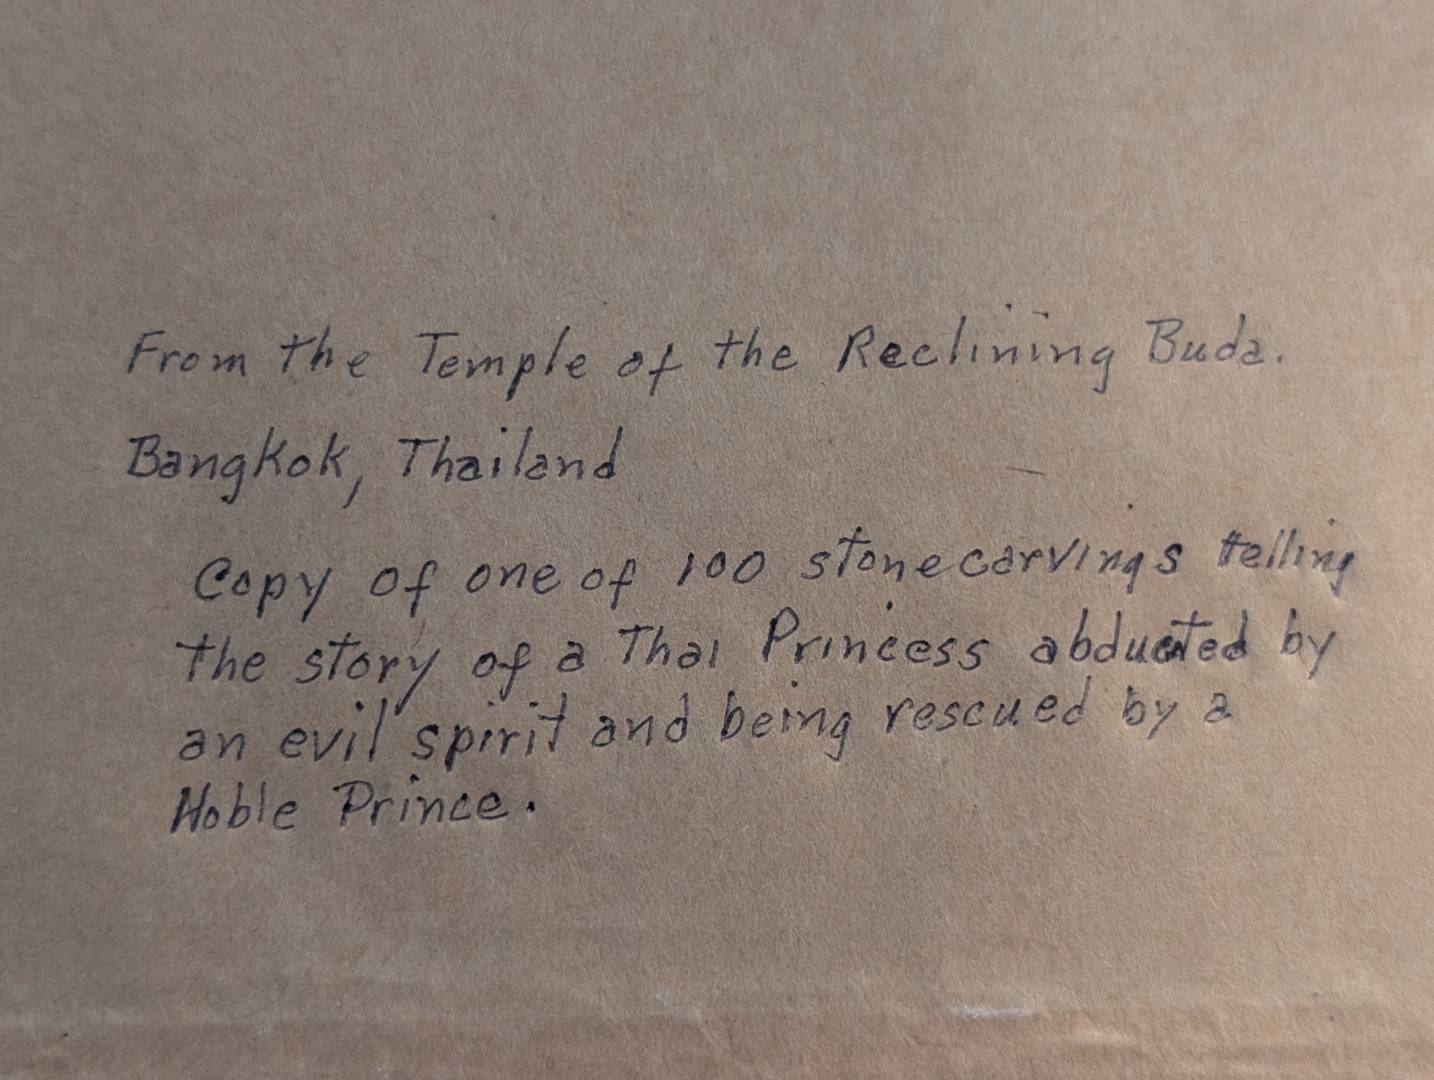 From the Temple of the Reclining Buda.
Bangkok, Thailand
Copy of one of 100 stonecarvings telling
the story of a Thai Princess abducted by
an evil spirit and being rescued by a
Noble Prince.